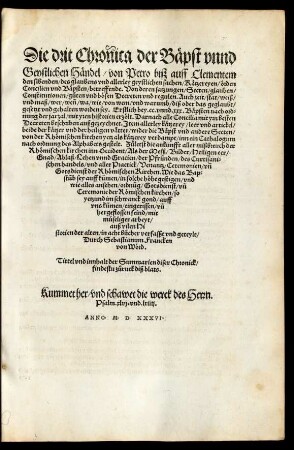 Die drit Chronica der Bäpst vnnd
Geystlichen Händel / von Petro biß auff Clementem
den sibenden / des glaubens vnd allerley geystlichen sachen / Ketzereyen / orden
Concilien vnd Bäpsten / betreffende. Von deren satzungen / Secten / glauben /
Constitutionen / guten vnd bösen Decreten vnd regulen. Auch zeit / stat / weiß /
vnd maß / wer / weß / wa / wie / von wem / vnd warumb / diß oder das geglaubt /
gesetzt vnd gehalten worden sey. Erstlich bey .cc. vnnd .xxx. Bäpsten nach ord
nung der jarzal / mit yren historien erzelt. Darnach alle Concilia mit yren besten
Decreten beschriben auß gezeychnet. Item allerley ketzerey / leer vnd artickel /
beide der ketzer vnd der heiligen vätter / wider die Bäpst vnd andere Secten /
von der Rhömischen kirchen yet als ketzerey verdampt / inn ein Cathalogum
nach ordnung des Alphabets gestelt. Zületst die ankunfft aller mißbreüch der
Rhömischen kirchen im Occident / Als der Meß / Bilder / Heiligen eer /
Gnad / Ablaß / Lehen vnnd Gratien / der Pfründen / des Curtisani-
schen handels / vnd aller Practick / Penantz / Ceremonien / vñ
Gotsdienst der Rhömischen Kirchen. Wie das Bap-
stůb sey auff kumen / in solche höhe gestigen / vnd
wie alles ansehen / ordnũg / Gotsdienst / vñ
Ceremonie der Römischen kirchen / so
yetzund im schwanck gond / auff
vns kumen / eingerissen / vñ
her geflossen seind / mit
müseliger arbeyt /
auß vilen Hi
storien der alten / in acht bücher verfasst vnd geteylt /
Durch Sebastianum Francken
von Wörd.
Tittel vnd innhalt der Summarien diser Chronick /
findestu zů ruck diß blats.
Kummet her / vnd schawet die werck des Herrn.
Psalm. xlvj. vnd. lxvij.
ANNO M D XXXVI.